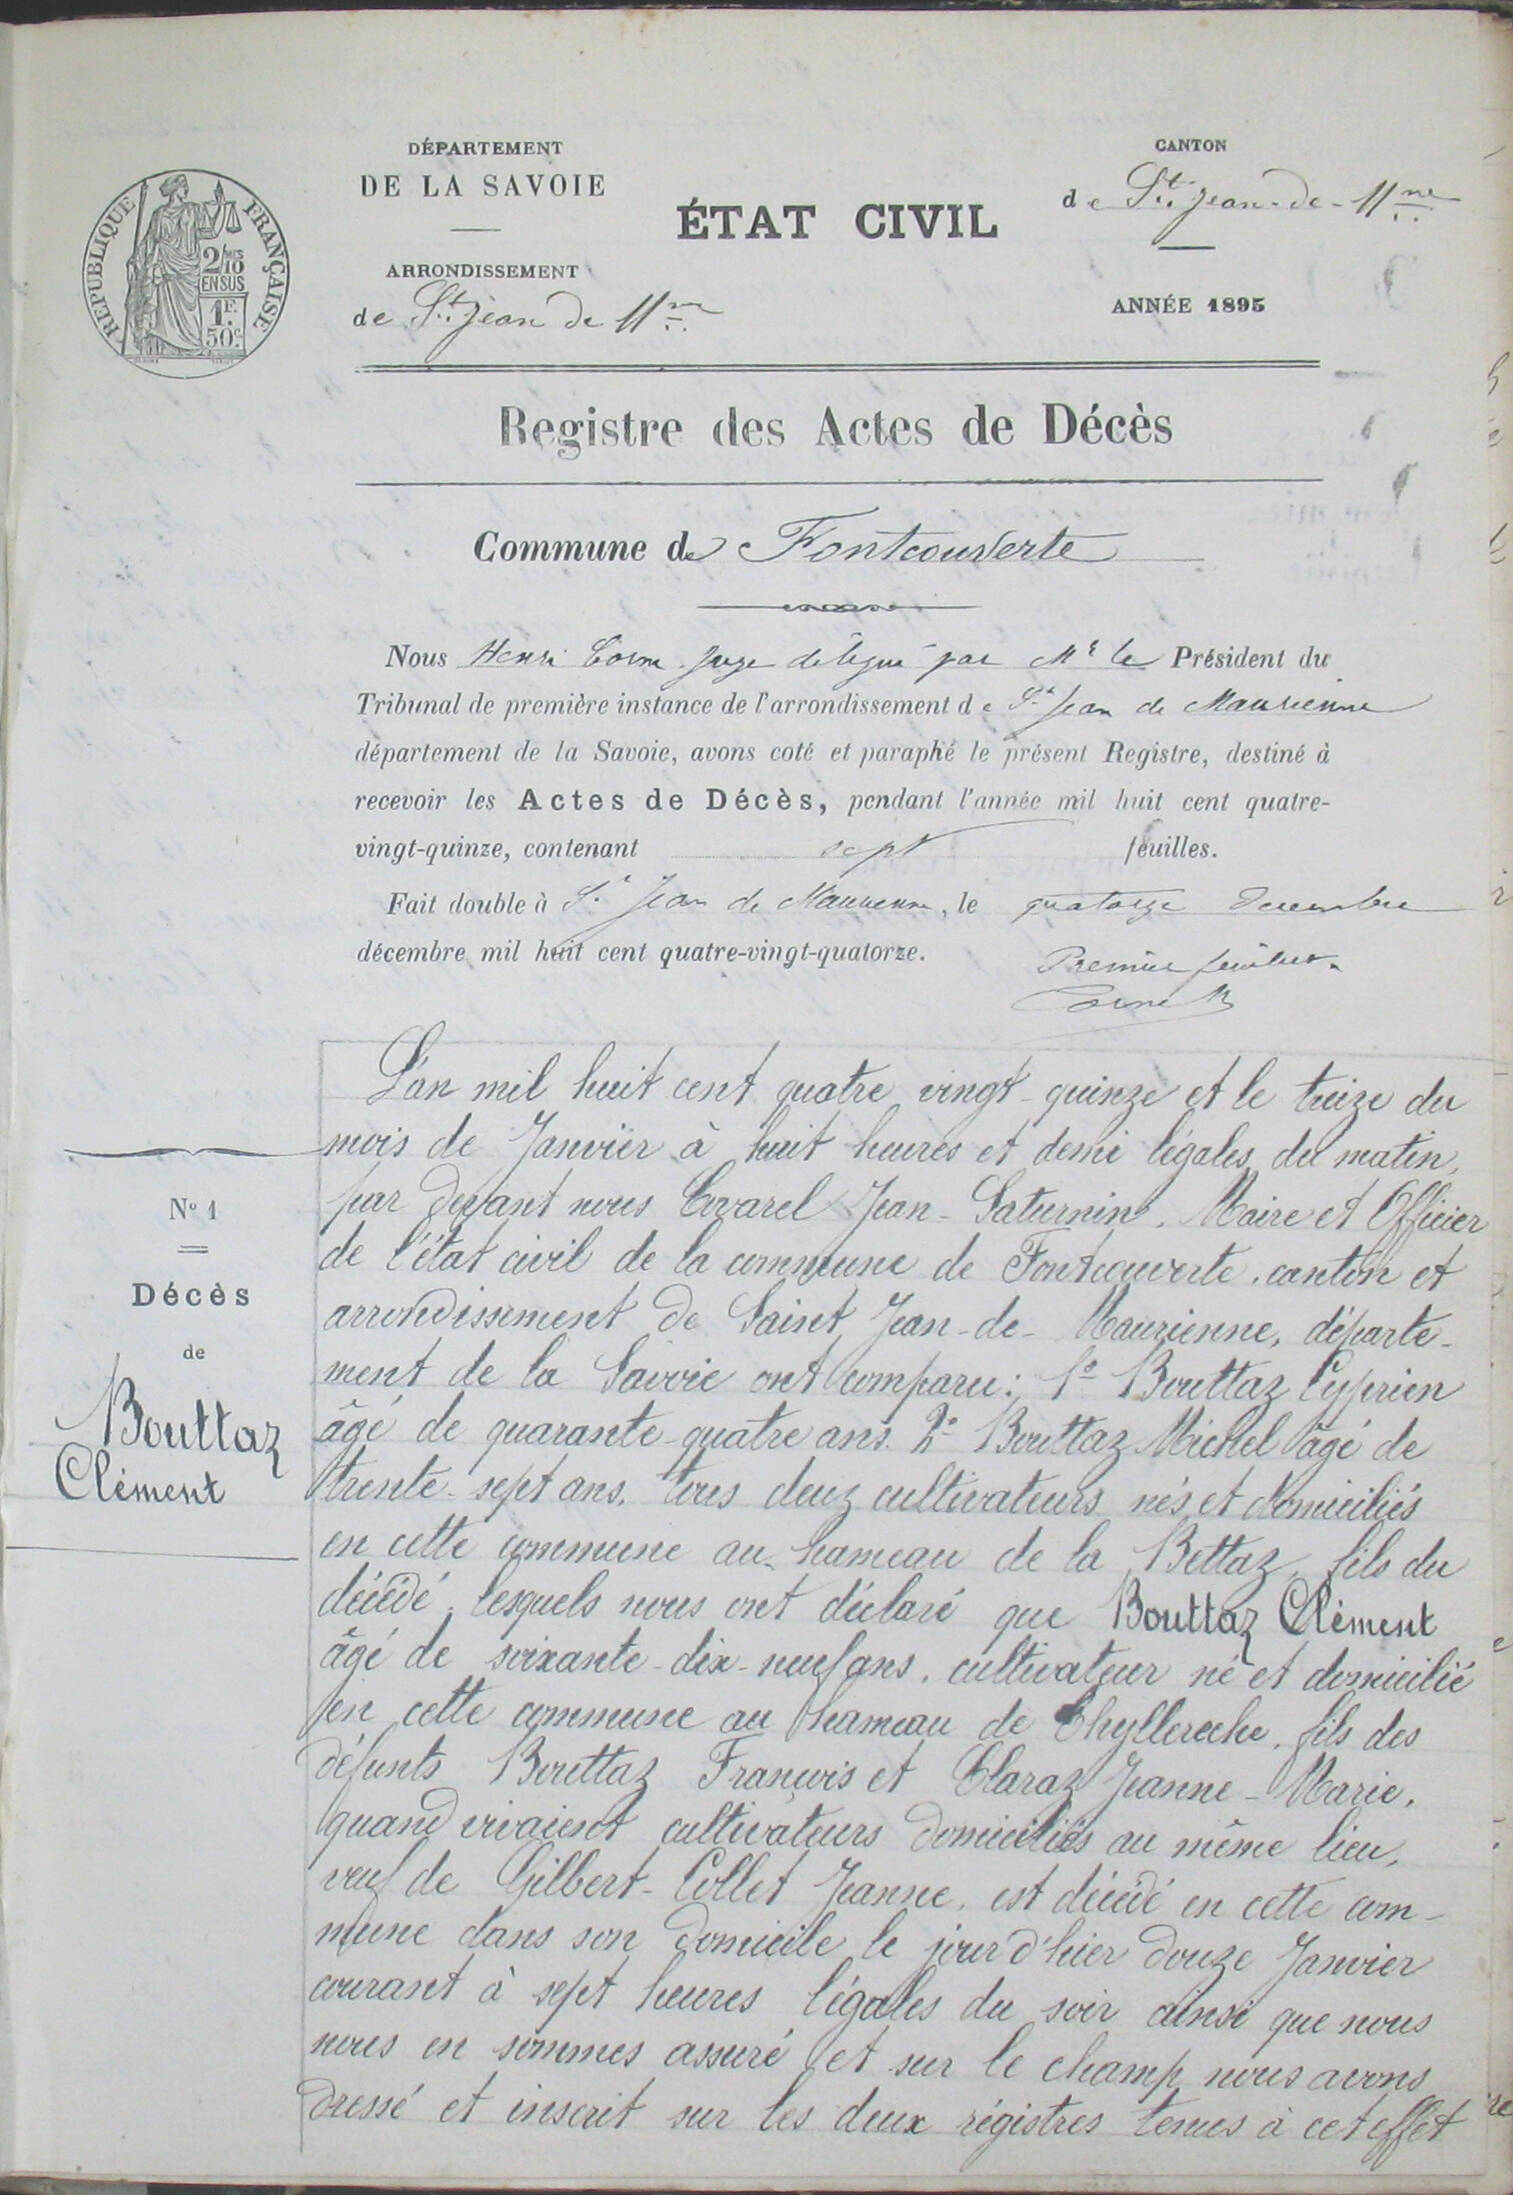 DÉPARTEMENT
DE LA SAVOIE
ARRONDISSEMENT
de St Jean de Mne
RÉPUBLIQUE FRANÇAISE
2/10
EN SUS
1F.
50c.
ÉTAT CIVIL
CANTON
de St Jean-de-Mne
ANNÉE 1895
Registre des Actes de Décès
Commune de Fontcouverte
Nous Henri Corne Juge délégué par Mr le Président du
Tribunal de première instance de l'arrondissement de St Jean de Maurienne
département de la Savoie, avons coté et paraphé le présent Registre, destiné à
recevoir les Actes de Décès, pendant l'année mil huit cent quatre-
vingt-quinze, contenant sept feuilles.
Fait double à St Jean de Maurienne, le quatorze decembre
décembre mil huit cent quatre-vingt-quatorze.
Premier feuillet.
Corne
N° 1
Décès
de
Bouttaz
Clément
L'an mil huit cent quatre vingt-quinze et le treize du
mois de Janvier à huit heures et demi légales du matin,
par devant nous Covarel Jean-Saturnin, Maire et Officier
de l'état civil de la commune de Fontcouverte, canton et
arrondissement de Saint Jean-de-Maurienne, départe-
ment de la Savoie ont comparu: 1° Bouttaz Cyprien
âgé de quarante-quatre ans. 2° Bouttaz Michel âgé de
trente-sept ans, tous deux cultivateurs nés et domiciliés
en cette commune au hameau de la Bettaz, fils du
décédé, lesquels nous ont déclaré que Bouttaz Clément
âgé de soixante-dix-neuf ans, cultivateur né et domicilié
en cette commune au hameau de Chyllereche, fils des
défunts Bouttaz François et Claraz Jeanne-Marie,
quand vivaient cultivateurs domiciliés au même lieu,
veuf de Gilbert-Collet Jeanne, est décédé en cette com-
mune dans son domicile le jour d'hier douze Janvier
courant à sept heures légales du soir ainsi que nous
nous en sommes assuré et sur le champ nous avons
dressé et inscrit sur les deux régistres tenus à cet effet